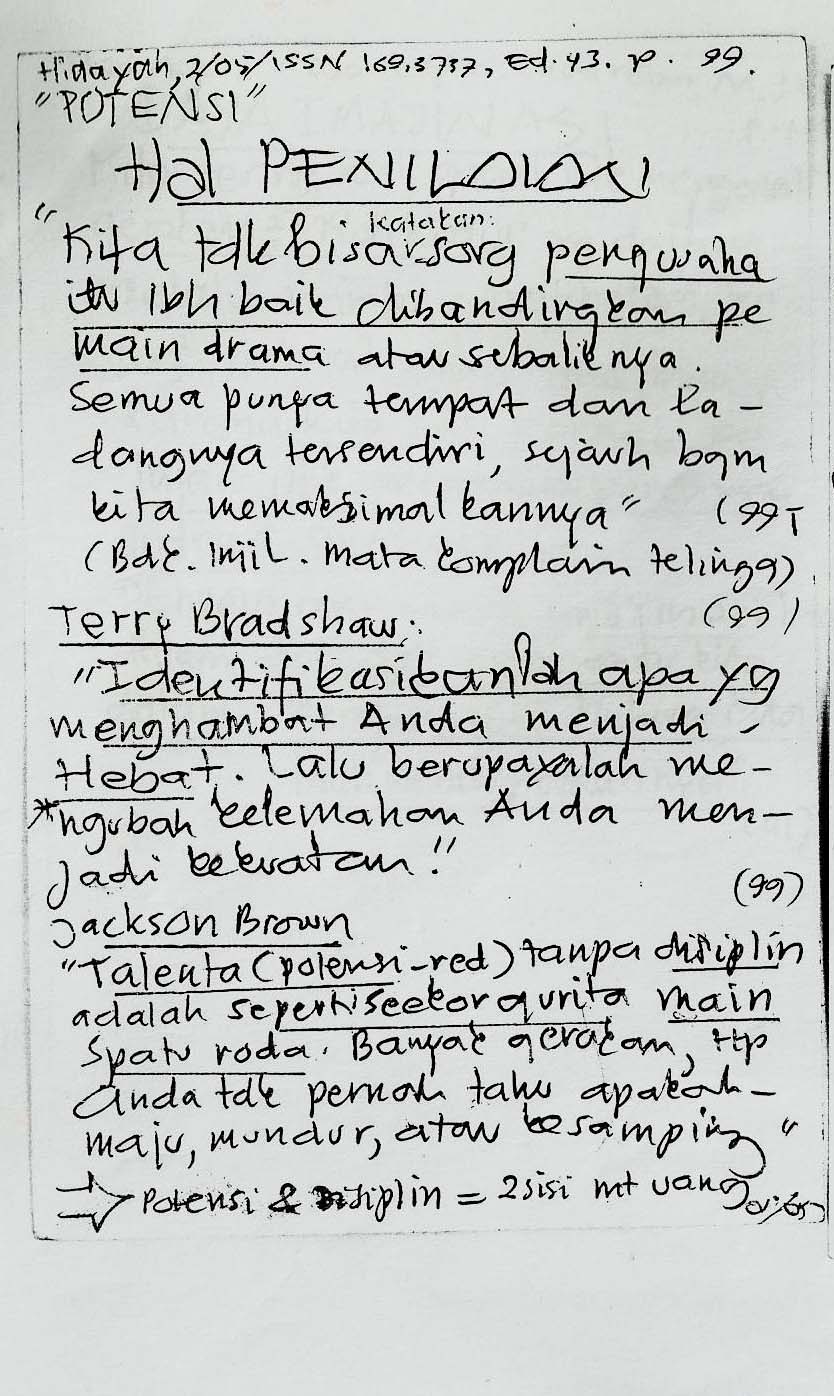 Hidayah, 2/05/ISSN 169.3737, Ed. 43. p. 99.
"POTENSI"
Hal PENILAIAN
katakan:
"Kita tdk bisa sorg pengusaha
itu lbh baik dibandingkan pe
main drama atau sebaliknya.
Semua punya tempat dan la-
dangnya tersendiri, sejauh bgm
kita memaksimalkannya" (99
(Bdk. Injil. Mata komplain telinga)
Terry Bradshaw: (99)
"Identifikasikanlah apa yg
menghambat Anda menjadi
Hebat. Lalu berupayalah me-
*ngubah kelemahan Anda men-
jadi kekuatan!"
(99)
Jackson Brown
"Talenta (potensi-red) tanpa disiplin
adalah seperti seekor gurita main
Spatu roda. Banyak gerakan, ttp
anda tdk pernah tahu apakah-
maju, mundur, atau kesamping"
⇒ Potensi & Disiplin = 2 sisi mt uang